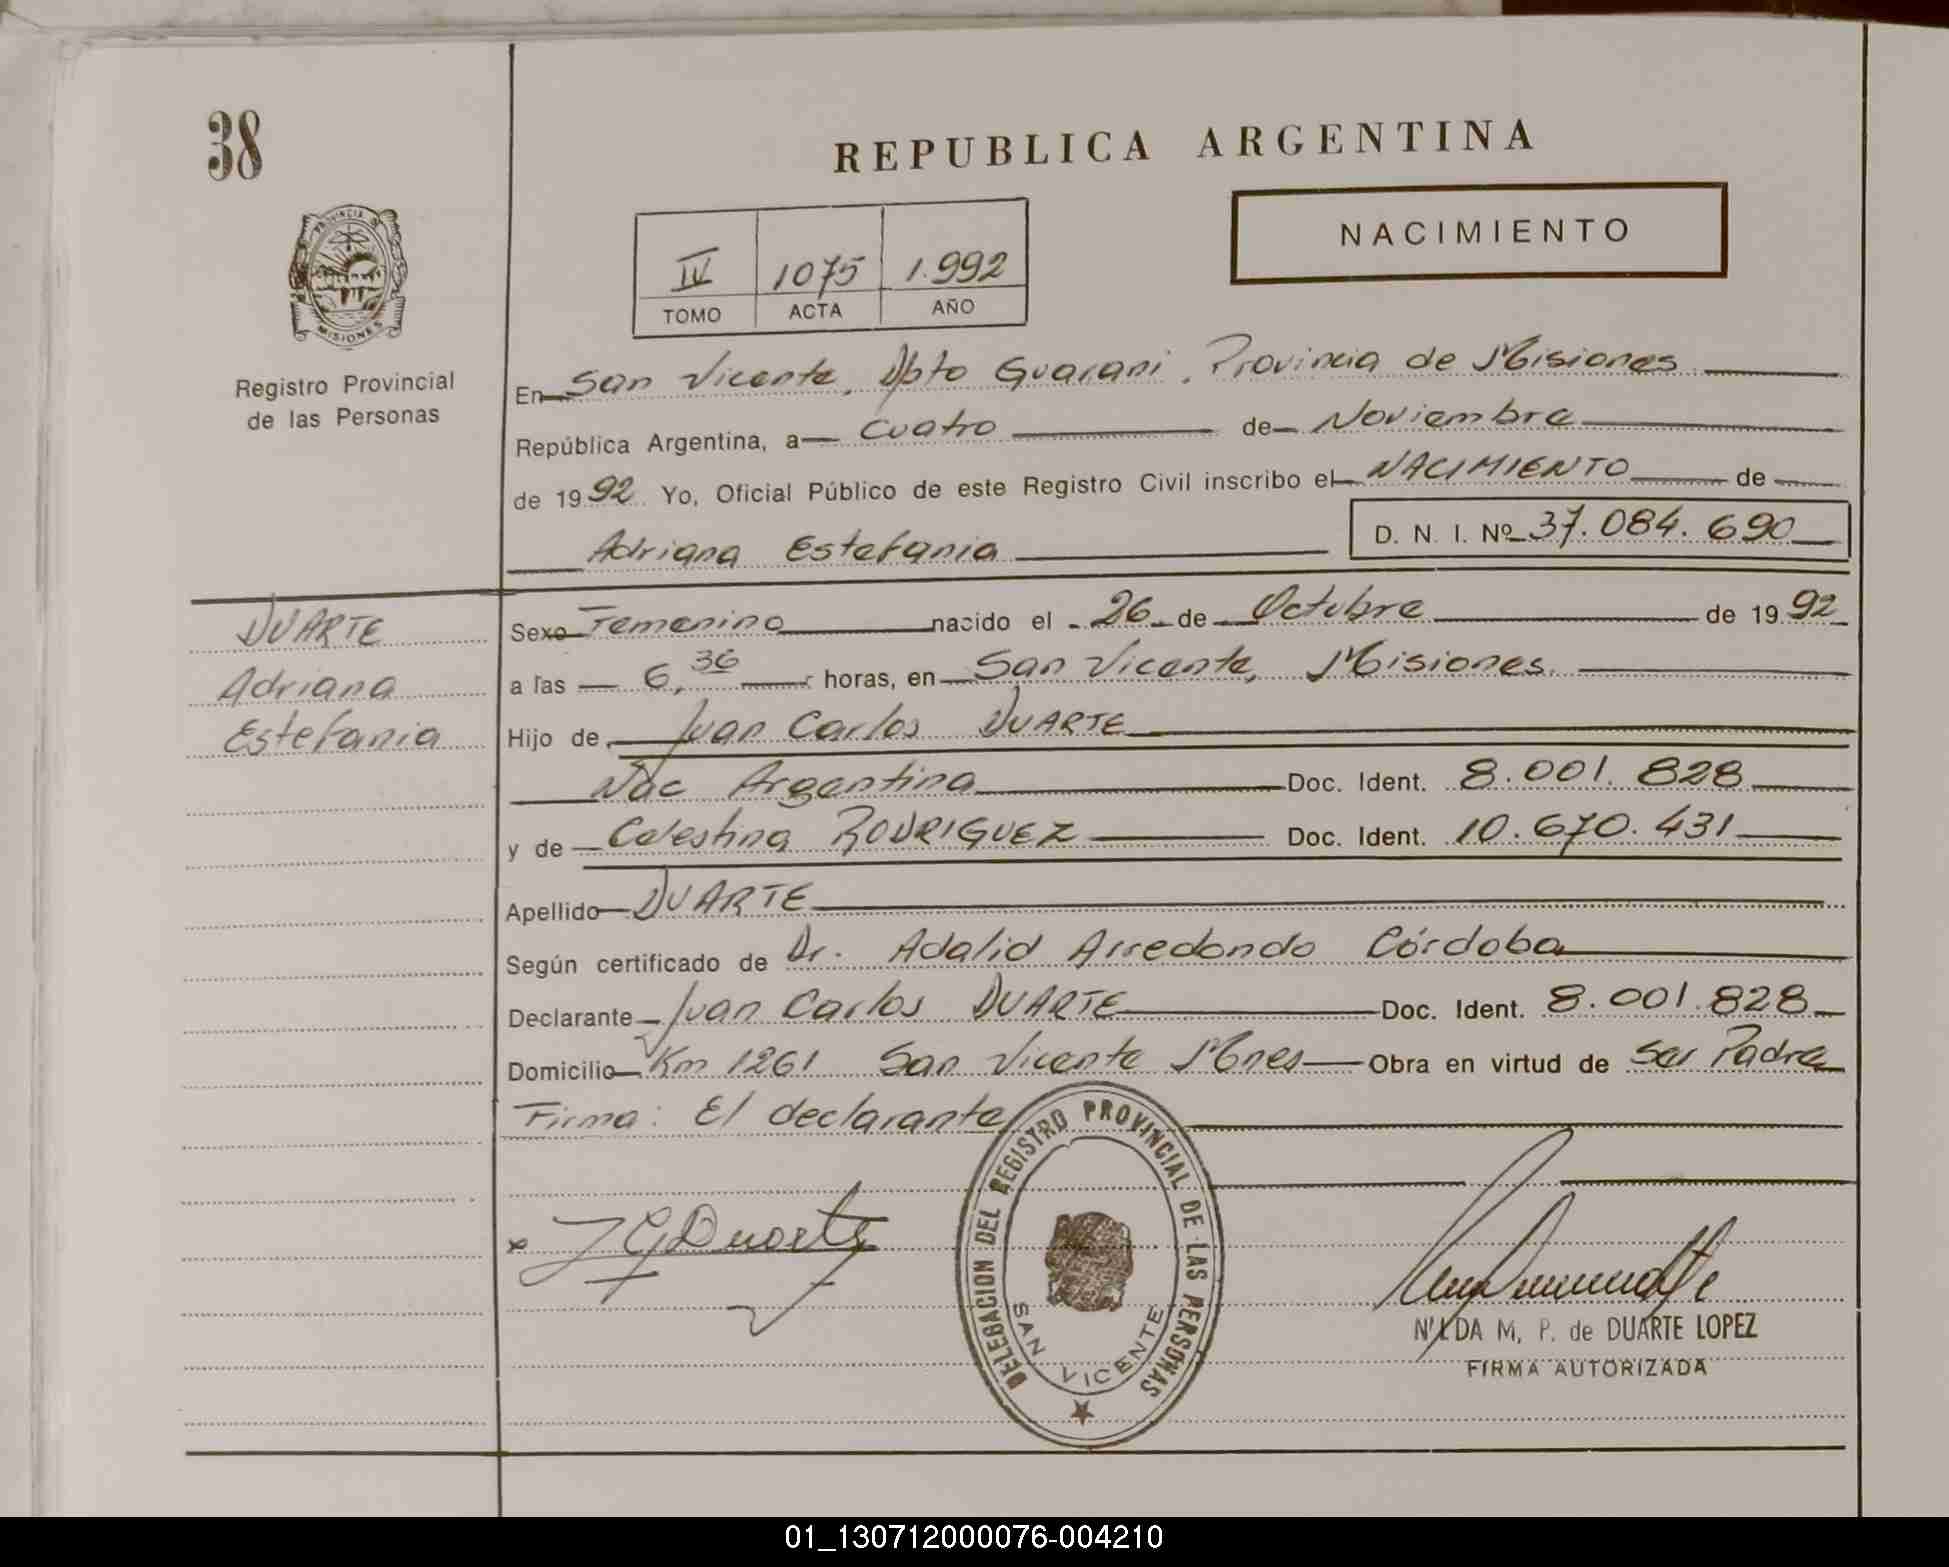 38
REPUBLICA ARGENTINA
NACIMIENTO
IV 1075 1.992
TOMO ACTA AÑO
PROVINCIA DE
MISIONES
Registro Provincial
de las Personas
En San Vicente, Dpto Guarani, Provincia de Misiones
República Argentina, a Cuatro de Noviembre
de 19 92 Yo, Oficial Público de este Registro Civil inscribo el NACIMIENTO de
Adriana Estefania D. N. I. Nº 37.084.690
DUARTE
Adriana
Estefania
Sexo Femenino nacido el 26 de Octubre de 19 92
a las 6,36 horas, en San Vicente, Misiones.
Hijo de Juan Carlos DUARTE
Nac Argentina Doc. Ident. 8.001.828
y de Celestina RODRIGUEZ Doc. Ident. 10.670.431
Apellido DUARTE
Según certificado de Dr. Adalid Arredondo Córdoba
Declarante Juan Carlos DUARTE Doc. Ident. 8.001.828
Domicilio Km 1261 San Vicente Mnes Obra en virtud de Ser Padre
Firma: El declarante
DELEGACION DEL REGISTRO PROVINCIAL DE LAS PERSONAS
SAN VICENTE
x Duarte
NILDA M. P. de DUARTE LOPEZ
FIRMA AUTORIZADA
01_130712000076-004210